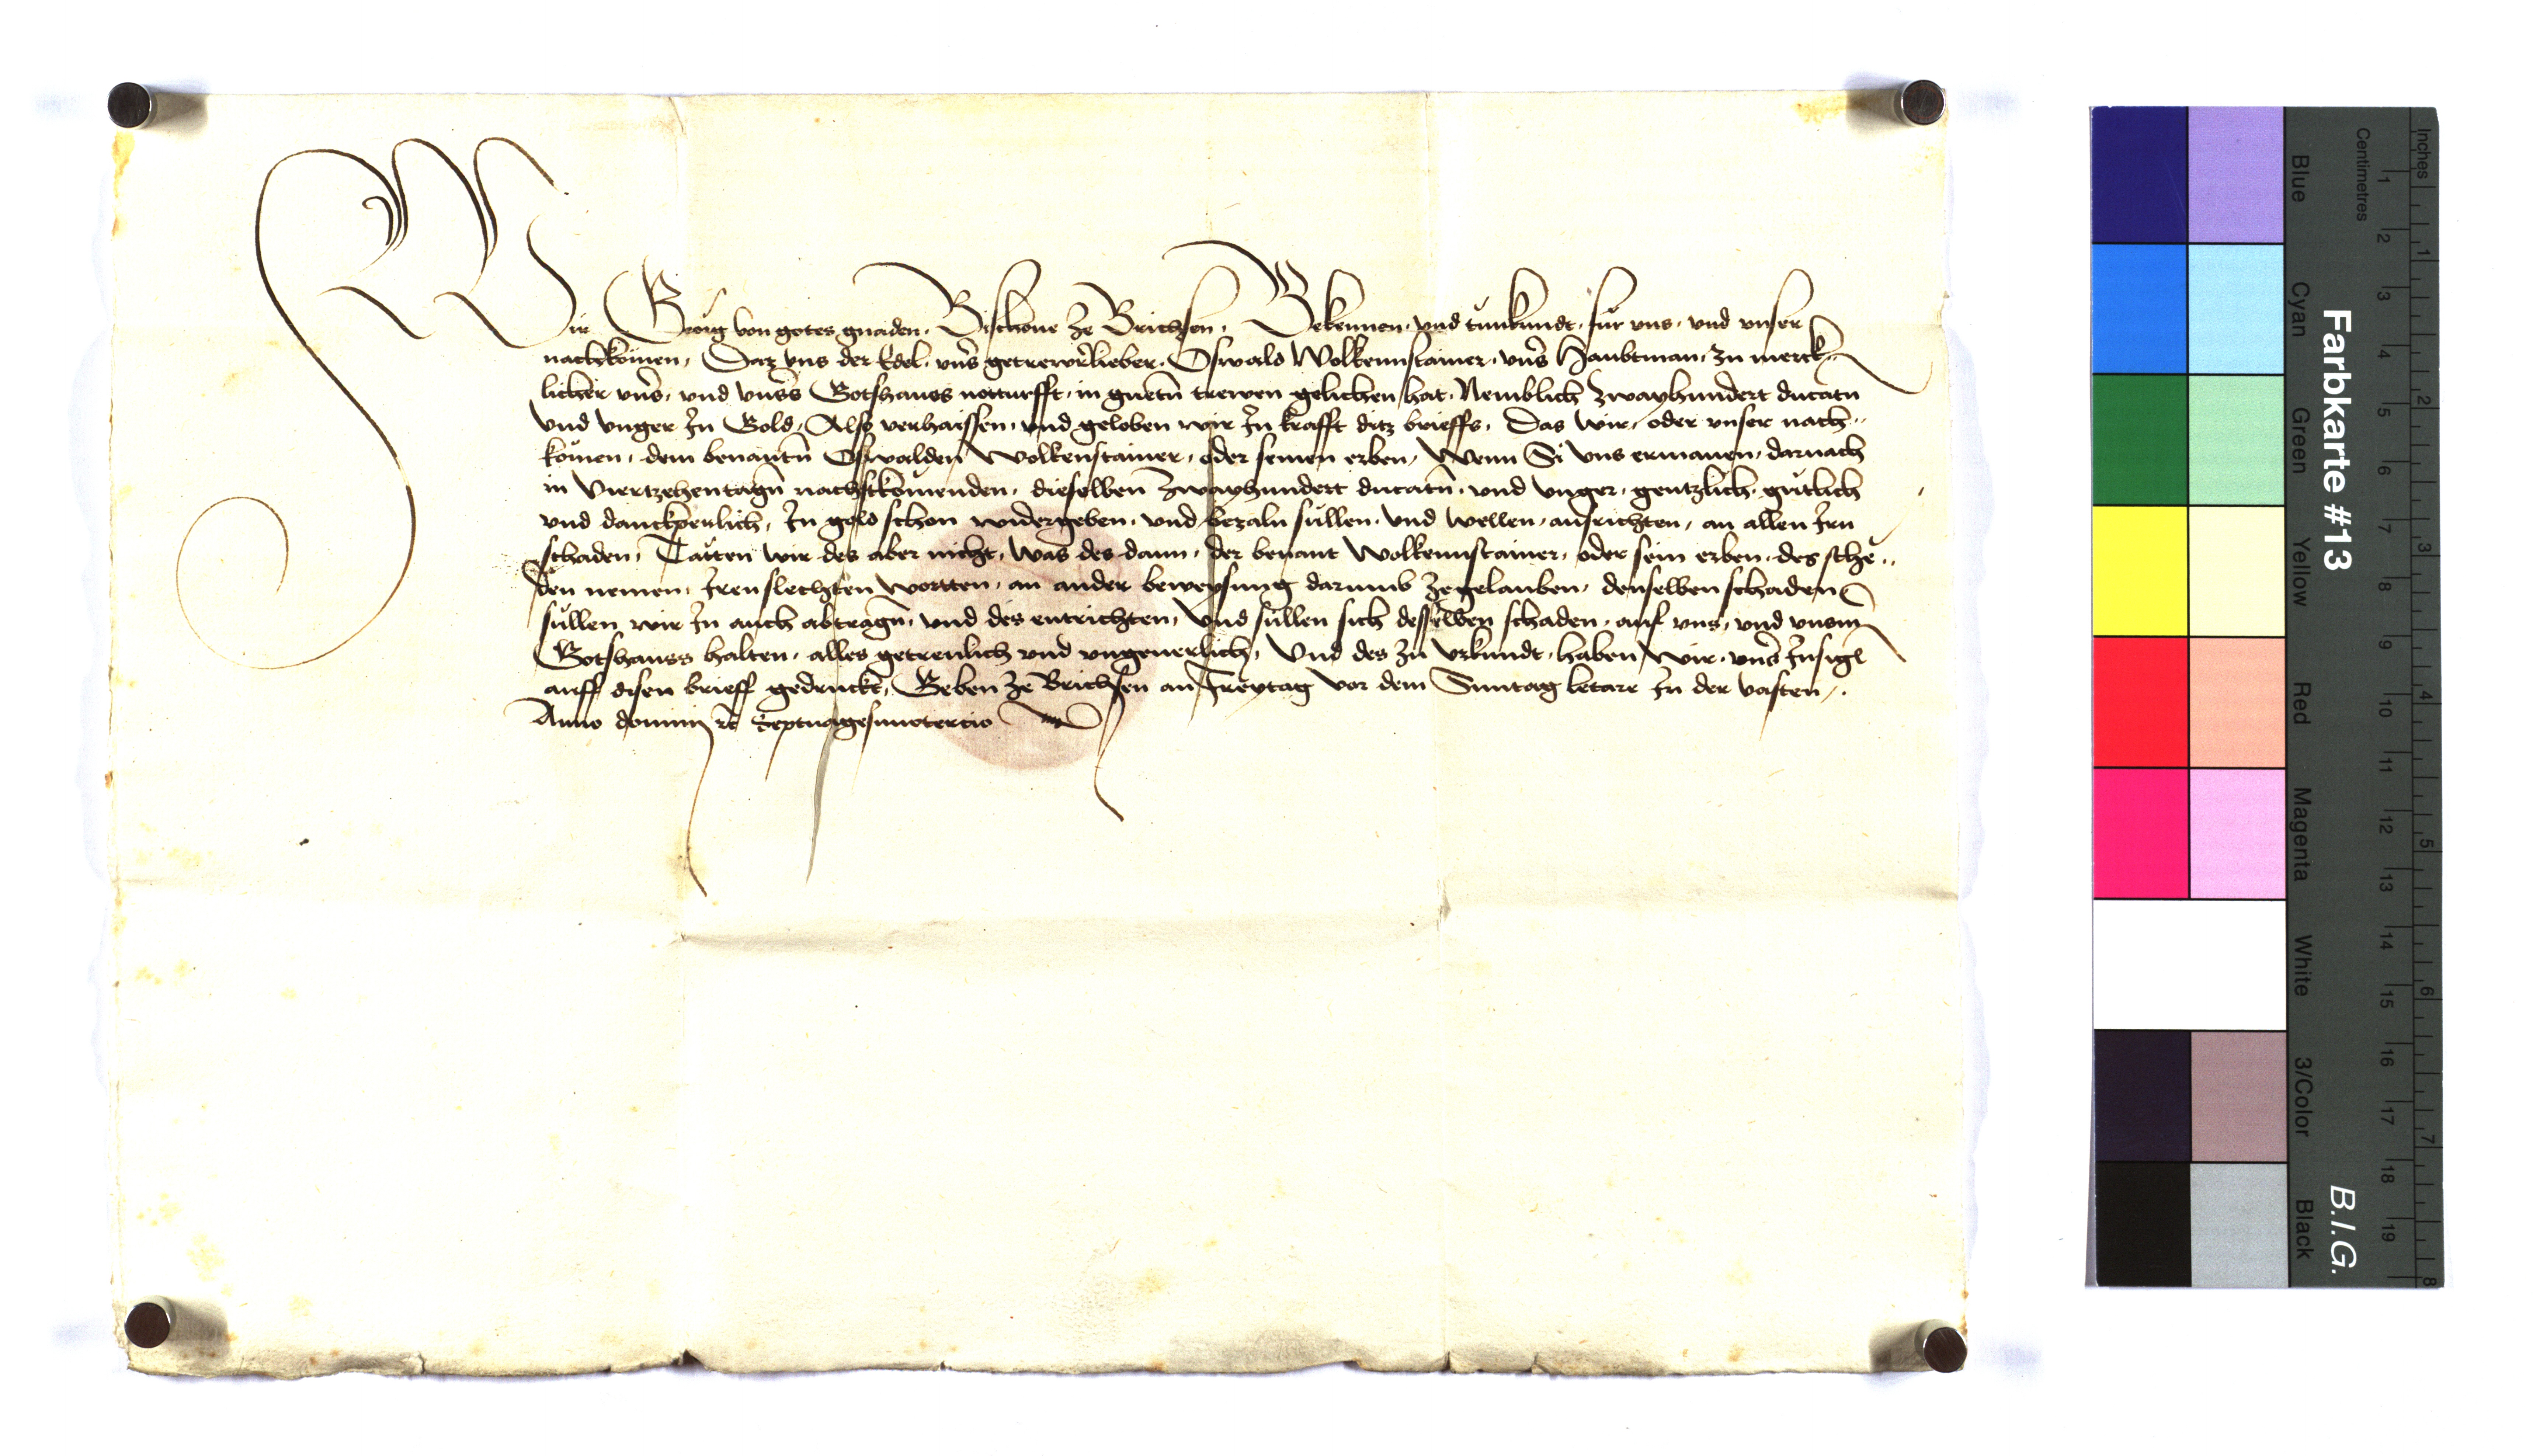 Wir Georg von gotes gnaden. Bischoue ze Brichsen. Bekennen. vnd tunkundt. für vns. vnd vnser
nachkomen. Daz vns der Edel. vns̄ getrewr lieber. Oswald Wolkennstainer. vns̄ Haubtman. zu merck-
licher vns̄. vnd vnss̄ Gotshauss notturfft. in guetn̄ trewen gelichen hat. Nemblich zwayhundert ducatn
vnd vnger In Gold. Also verhaissen. vnd geloben wir In krafft ditz brieffs. Das wir. oder vnser nach-
komen. dem benantn̄ Oswalden Wolkenstainer. oder seinen erben. Wenn Si vns ermanen. darnach
in viertzehentagn̄ nachstkomenden. dieselben zwayhundert ducatn̄. vnd vnger. gentzlich. gütlich
vnd danckperlich. In gold schon widergeben. vnd bezaln süllen. vnd wellen. ausrichten. an allen Irn
schaden. Tätten wir des aber nicht. was des dann. der benant Wolkennstainer. oder sein erben. des sche-
den nemen. Iren slechten wortten. an ander beweysung darumb zegelauben. denselben schaden
süllen wir In auch abtragn̄. vnd des entrichten. Vnd süllen sich desselben schaden. auf vns. vnd vnsm̄
Gotshauss halten. alles getreulich vnd vngeuerlich. Vnd des zu vrkundt. haben wir. vns̄ Insigl
auff disen brieff gedruckt. Geben ze Brichsen an Freytag vor dem Suntag letare In der vasten.
Anno domini rc̄ Septuagesimotercio
Farbkarte #13
B.I.G.
Inches
Centimetres
Blue
Cyan
Green
Yellow
Red
Magenta
White
3/Color
Black
1 2 3 4 5 6 7 8 9 10 11 12 13 14 15 16 17 18 19
1 2 3 4 5 6 7 8